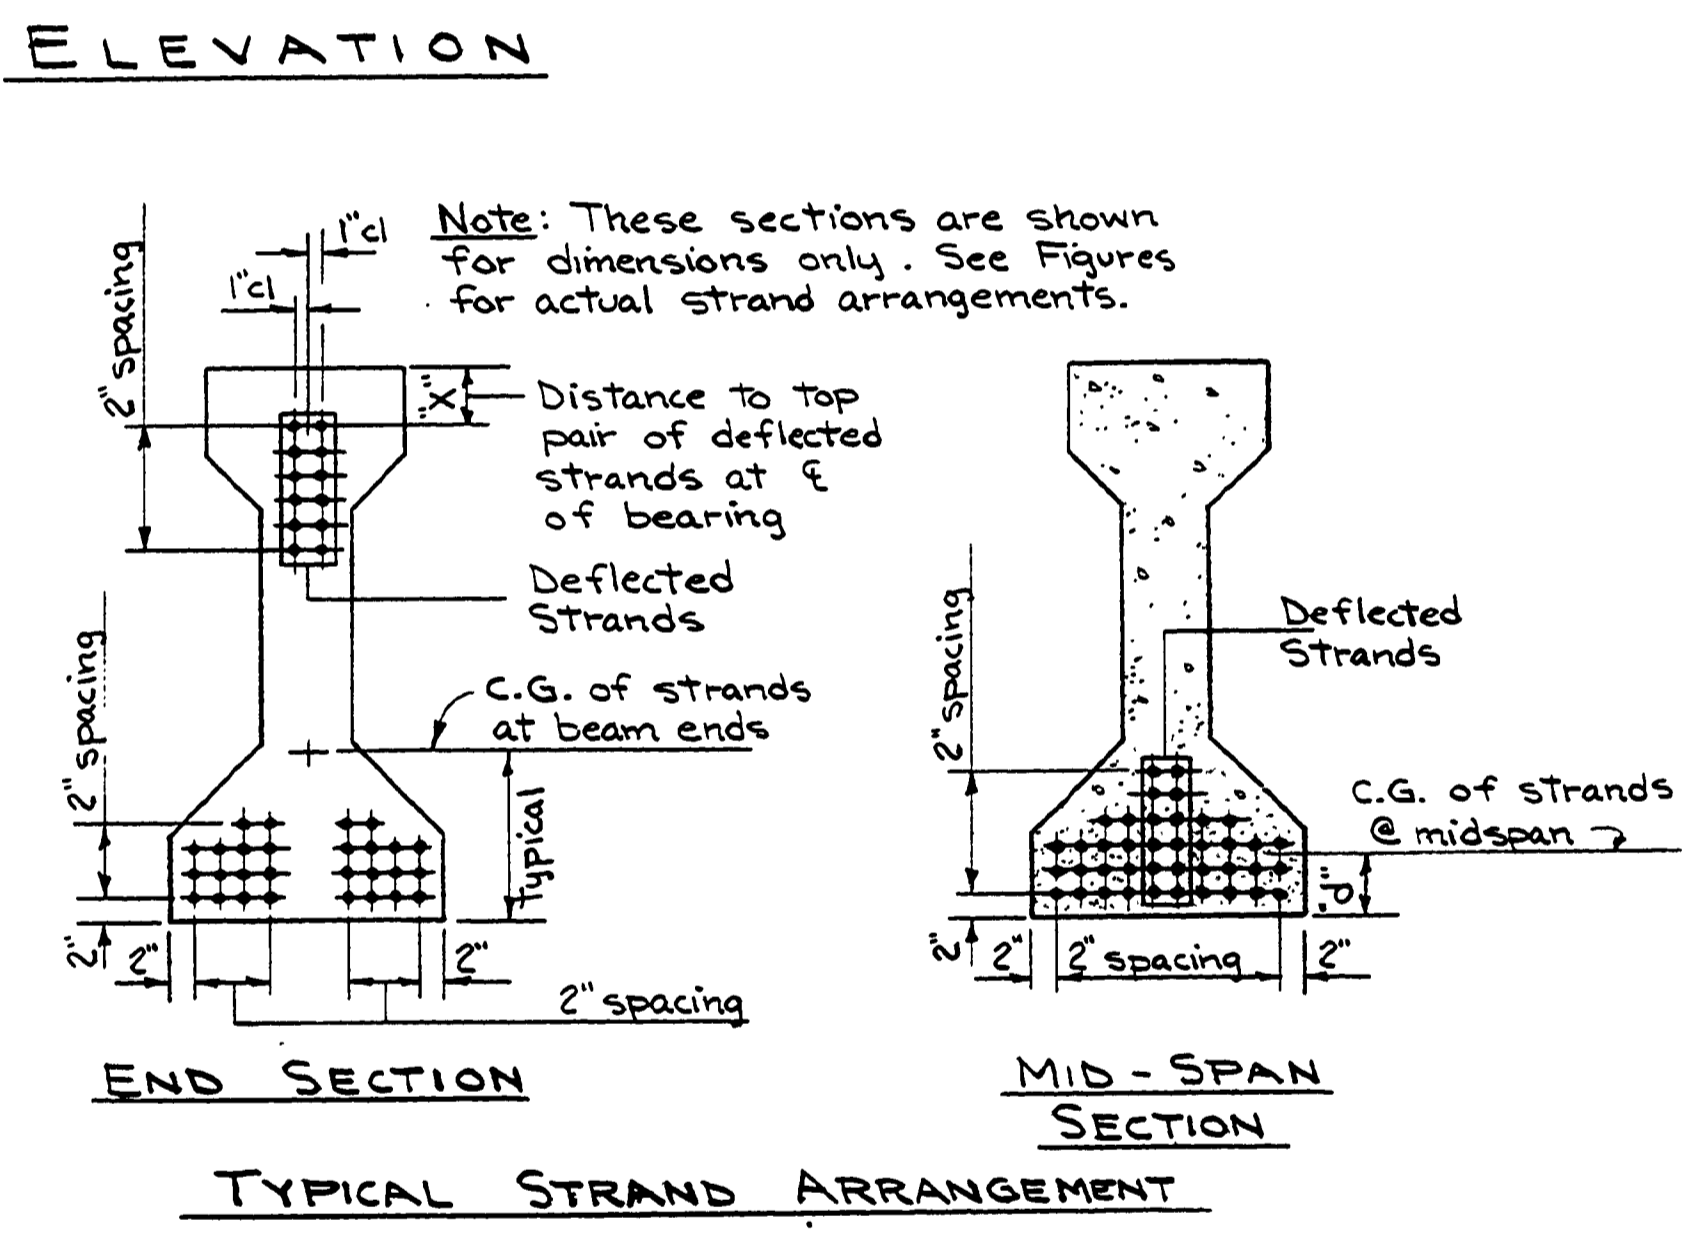 ELEVATION
1"cl
1"cl
2" spacing
Note: These sections are shown
for dimensions only. See Figures
for actual strand arrangements.
"X"
Distance to top
pair of deflected
strands at ℄
of bearing
Deflected
Strands
2" spacing
C.G. of strands
at beam ends
Typical
2"
2"
2"
2" spacing
END SECTION
2" spacing
Deflected
Strands
C.G. of strands
@ midspan
"d"
2"
2"
2" spacing
2"
MID-SPAN
SECTION
TYPICAL STRAND ARRANGEMENT